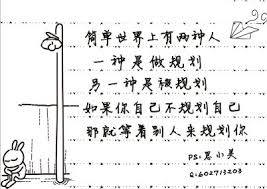 简单世界上有两种人
一种是做规划
另一种是被规划
如果你自己不规划自己
那就等着别人来规划你
PS:思小美
Q:602713203